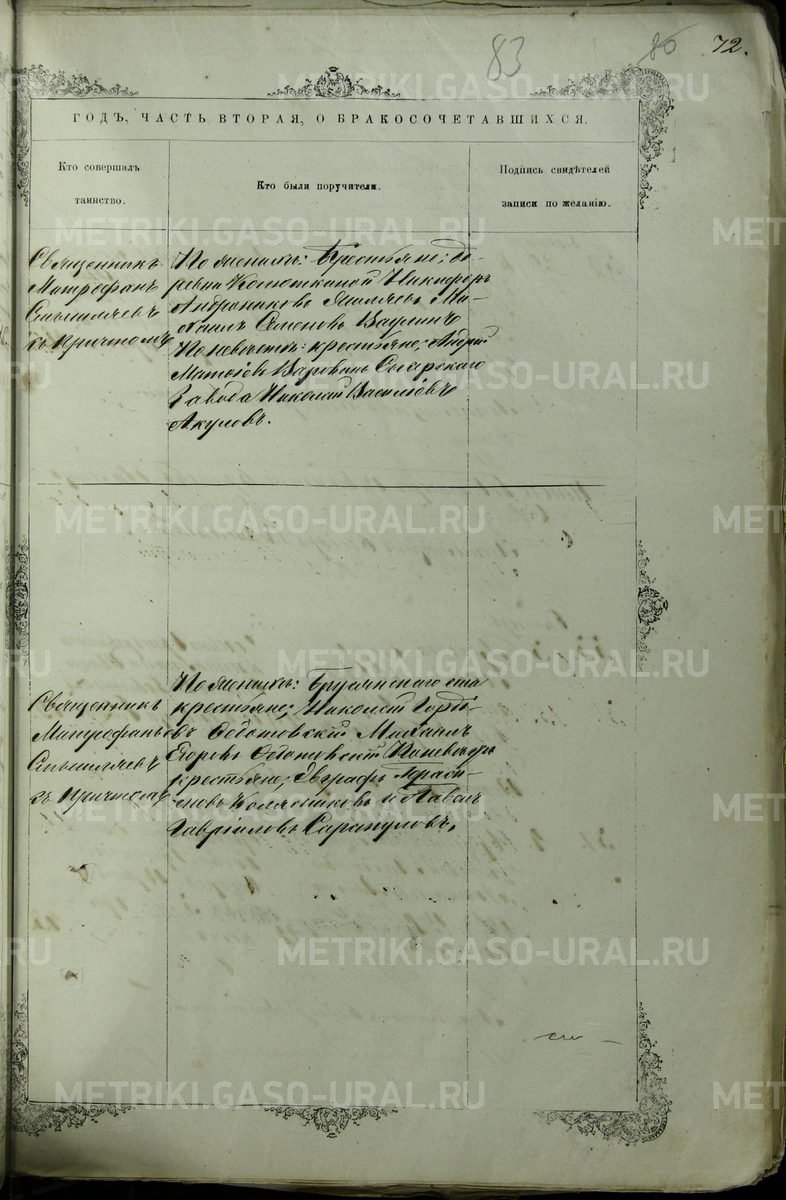 83
80
72.
ГОДЪ, ЧАСТЬ ВТОРАЯ, О БРАКОСОЧЕТАВШИХСЯ.
Кто совершалъ
таинство.
Кто были поручители.
Подпись свидѣтелей
записи по желанію.
Священникъ
Митрофанъ
съ причтомъ
По женихѣ: Крестьяне: де-
ревни Никифоръ
Андрониковъ Ми-
хаилъ Семеновъ
По невѣстѣ: крестьяне; Андрей
Матвіевъ Сысертскаго
завода Николай Василіевъ
Акуловъ.
Священникъ
Митрофанъ
съ причтомъ
По женихѣ: Бруснянскаго
крестьяне; Николай Горді-
евъ Михаилъ
Егоровъ По невѣстѣ
крестьяне; Евграфъ
и Павелъ
Гавріиловъ Сарапуловъ.
METRIKI.GASO-URAL.RU